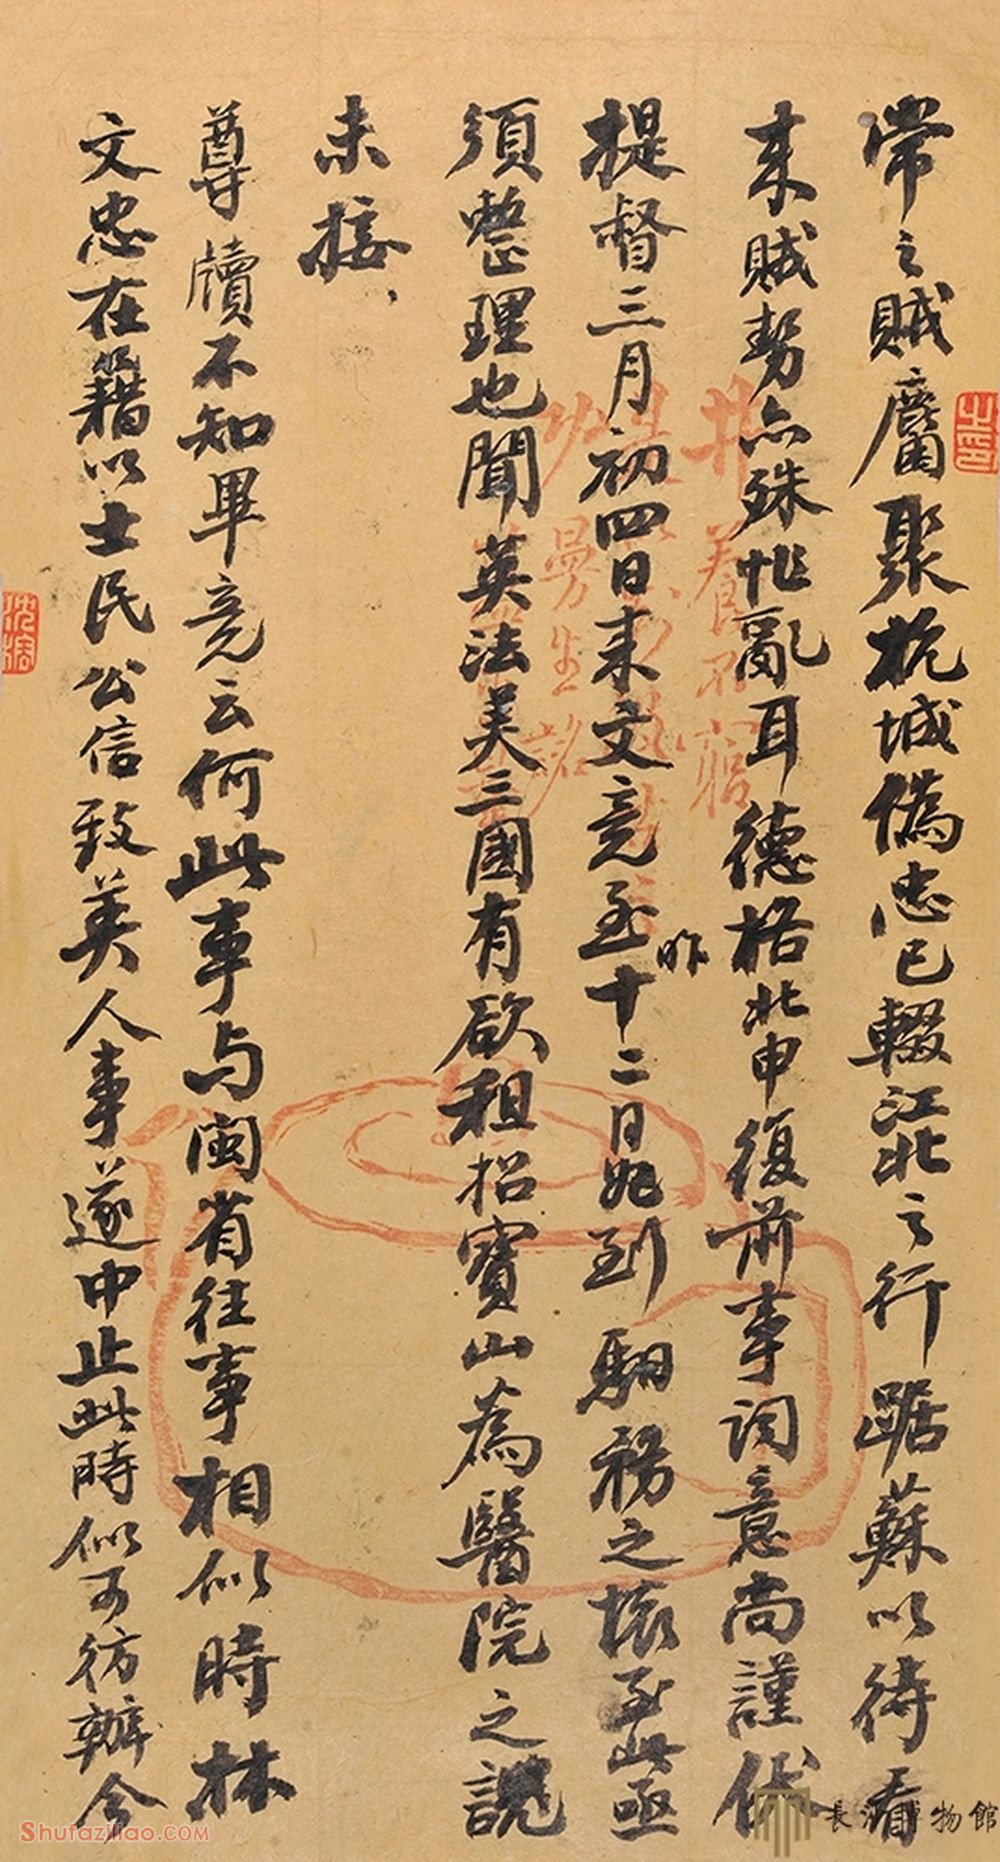 常之賊麕聚杭城偽忠已輟江北之行踞蘇以待看
来賊勢亦殊惟亂耳德格北申復前事詞意尚謹伏
提督三月初四日来文竟至昨十二日始到駉務之壞至此亟
須整理也聞英法美三國有欲租招寶山為醫院之說
未接
尊牘不知畢竟云何此事与閩省往事相似時林
文忠在籍以士民公信致英人事遂中止此時似可彷辦今
井養不窮
曼生銘
長沙博物館
Shufaziliao.COM